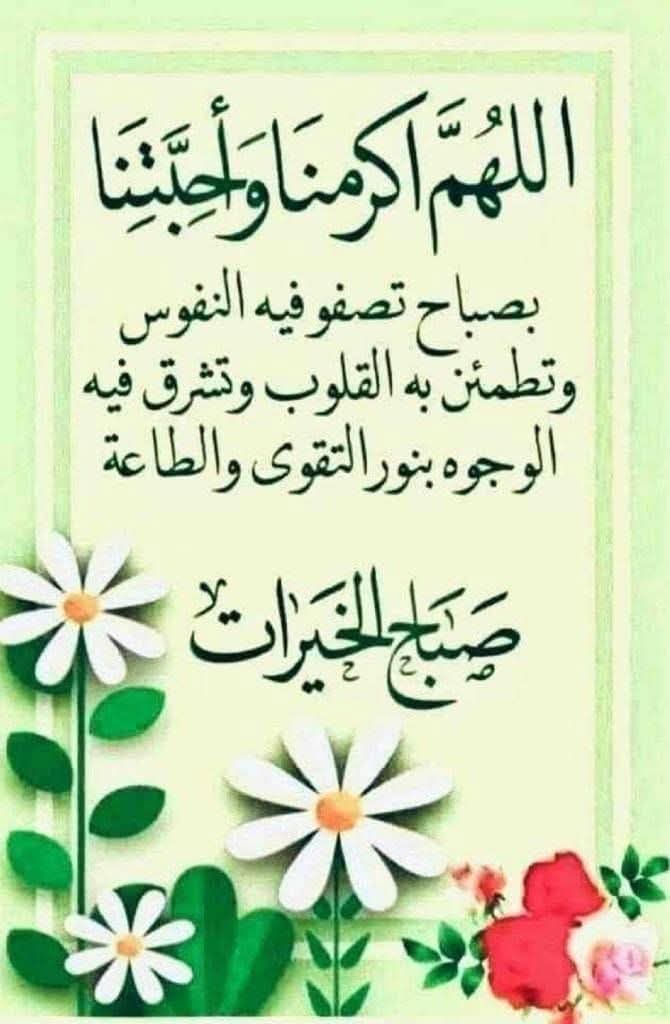 اللهُمَّ اكرمنَا وَأَحِبَّتِنَا
بصباح تصفو فيه النفوس
وتطمئن به القلوب وتشرق فيه
الوجوه بنور التقوى والطاعة
صَبَاح الخَيرَات